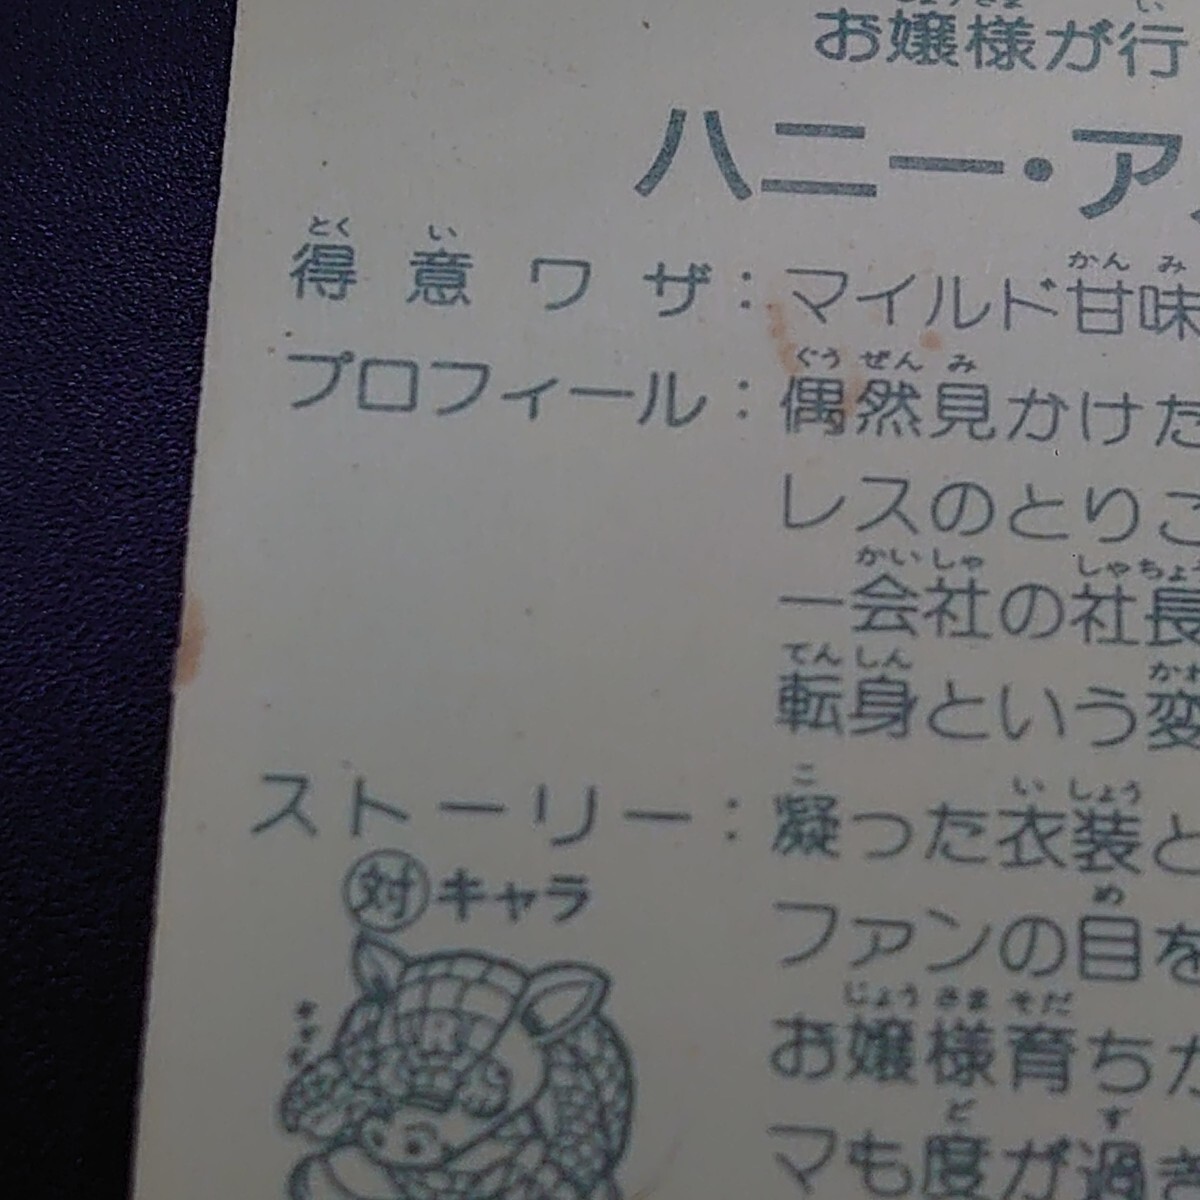 お嬢様が行
ハニー・ア
得意ワザ：マイルド甘味
プロフィール：偶然見かけた
レスのとりこ
一会社の社長
転身という変
ストーリー：凝った衣装と
対キャラ
ファンの目を
お嬢様育ちが
マも度が過ぎ